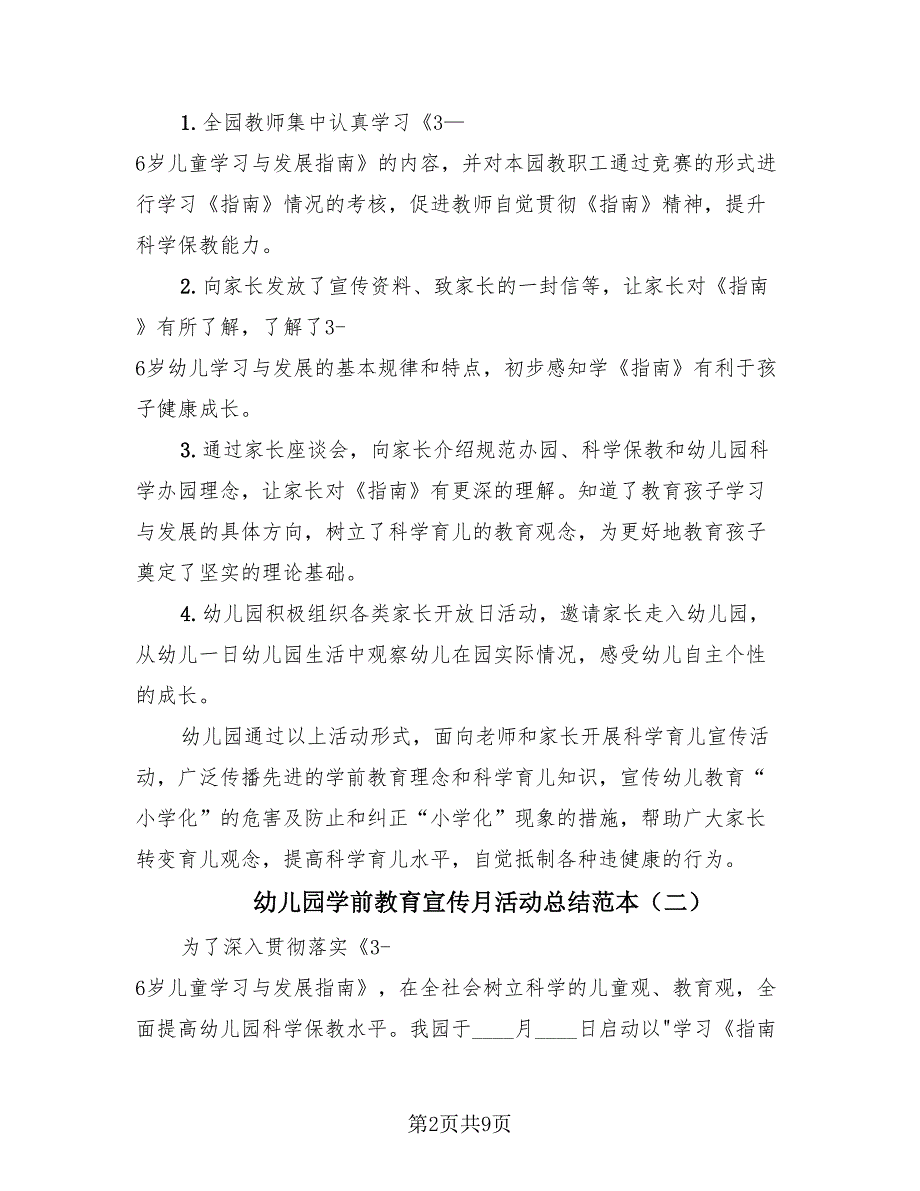 1. 全园教师集中认真学习《3—
6岁儿童学习与发展指南》的内容，并对本园教职工通过竞赛的形式进
行学习《指南》情况的考核，促进教师自觉贯彻《指南》精神，提升
科学保教能力。
2. 向家长发放了宣传资料、致家长的一封信等，让家长对《指南
》有所了解，了解了3-
6岁幼儿学习与发展的基本规律和特点，初步感知学《指南》有利于孩
子健康成长。
3. 通过家长座谈会，向家长介绍规范办园、科学保教和幼儿园科
学办园理念，让家长对《指南》有更深的理解。知道了教育孩子学习
与发展的具体方向，树立了科学育儿的教育观念，为更好地教育孩子
奠定了坚实的理论基础。
4. 幼儿园积极组织各类家长开放日活动，邀请家长走入幼儿园，
从幼儿一日幼儿园生活中观察幼儿在园实际情况，感受幼儿自主个性
的成长。
幼儿园通过以上活动形式，面向老师和家长开展科学育儿宣传活
动，广泛传播先进的学前教育理念和科学育儿知识，宣传幼儿教育“
小学化”的危害及防止和纠正“小学化”现象的措施，帮助广大家长
转变育儿观念，提高科学育儿水平，自觉抵制各种违健康的行为。
幼儿园学前教育宣传月活动总结范本（二）
为了深入贯彻落实《3-
6岁儿童学习与发展指南》，在全社会树立科学的儿童观、教育观，全
面提高幼儿园科学保教水平。我园于____月____日启动以"学习《指南
第2页共9页